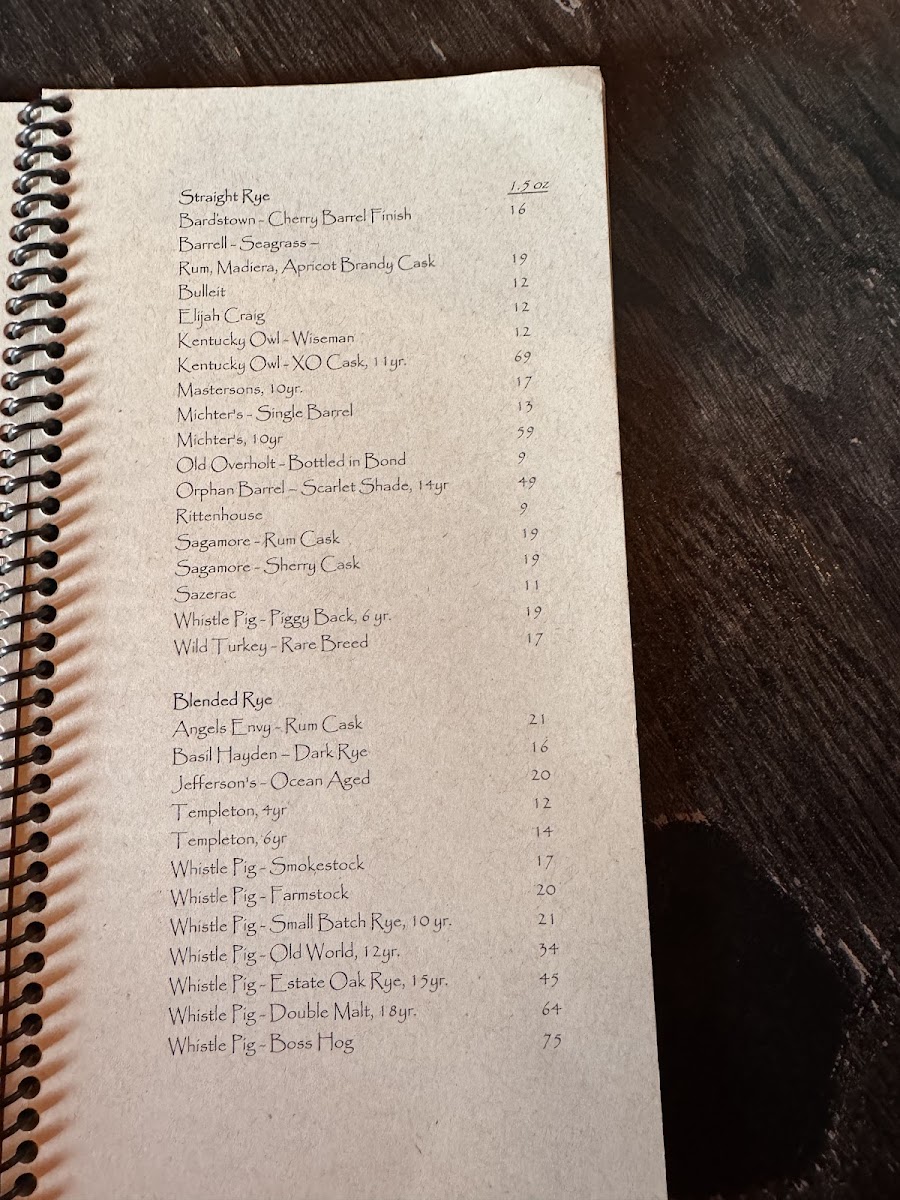 Straight Rye 1.5 oz
Bardstown - Cherry Barrel Finish 16
Barrell - Seagrass –
Rum, Madiera, Apricot Brandy Cask 19
Bulleit 12
Elijah Craig 12
Kentucky Owl - Wiseman 12
Kentucky Owl - XO Cask, 11yr. 69
Mastersons, 10yr. 17
Michter's - Single Barrel 13
Michter's, 10yr 59
Old Overholt - Bottled in Bond 9
Orphan Barrel – Scarlet Shade, 14yr 49
Rittenhouse 9
Sagamore - Rum Cask 19
Sagamore - Sherry Cask 19
Sazerac 11
Whistle Pig - Piggy Back, 6 yr. 19
Wild Turkey - Rare Breed 17
Blended Rye
Angels Envy - Rum Cask 21
Basil Hayden – Dark Rye 16
Jefferson's - Ocean Aged 20
Templeton, 4yr 12
Templeton, 6yr 14
Whistle Pig - Smokestock 17
Whistle Pig - Farmstock 20
Whistle Pig - Small Batch Rye, 10 yr. 21
Whistle Pig - Old World, 12yr. 34
Whistle Pig - Estate Oak Rye, 15yr. 45
Whistle Pig - Double Malt, 18yr. 64
Whistle Pig - Boss Hog 75